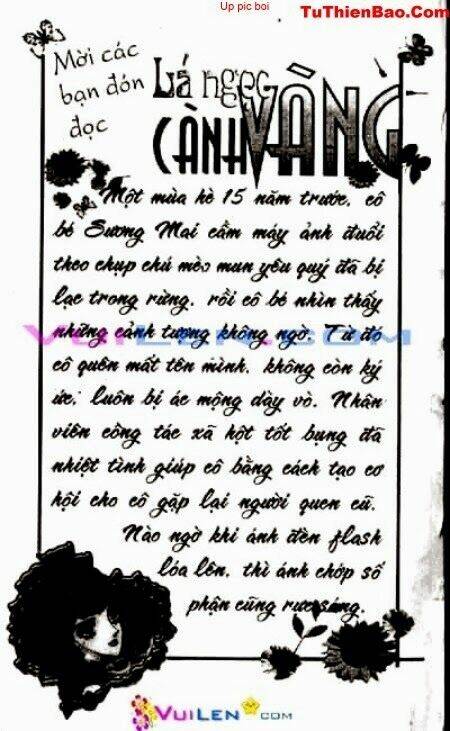 Up pic boi
TuThienBao.Com
Mời các
bạn đón
đọc
Lá ngọc
CÀNH VÀNG
Một mùa hè 15 năm trước, cô
bé Sương Mai cầm máy ảnh đuổi
theo chụp chú mèo mun yêu quý đã bị
lạc trong rừng, rồi cô bé nhìn thấy
những cảnh tượng không ngờ. Từ đó
cô quên mất tên mình, không còn ký
ức, luôn bị ác mộng dày vò. Nhân
viên công tác xã hột tốt bụng đã
nhiệt tình giúp cô bằng cách tạo cơ
hội cho cô gặp lại người quen cũ.
Nào ngờ khi ánh đèn flash
lóa lên, thì ánh chớp số
phận cũng rực sáng.
VUILEN.COM
VUILEN.COM